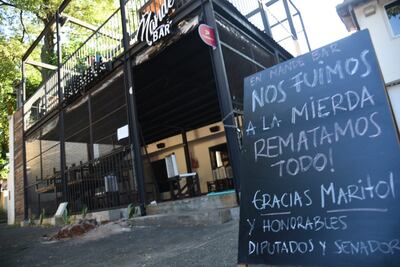 Mandé
BAR
EN MANDE BAR
NOS FUIMOS
A LA MIERDA
REMATAMOS
TODO!
GRACIAS MARITO!
Y HONORABLES
DIPUTADOS Y SENADOR